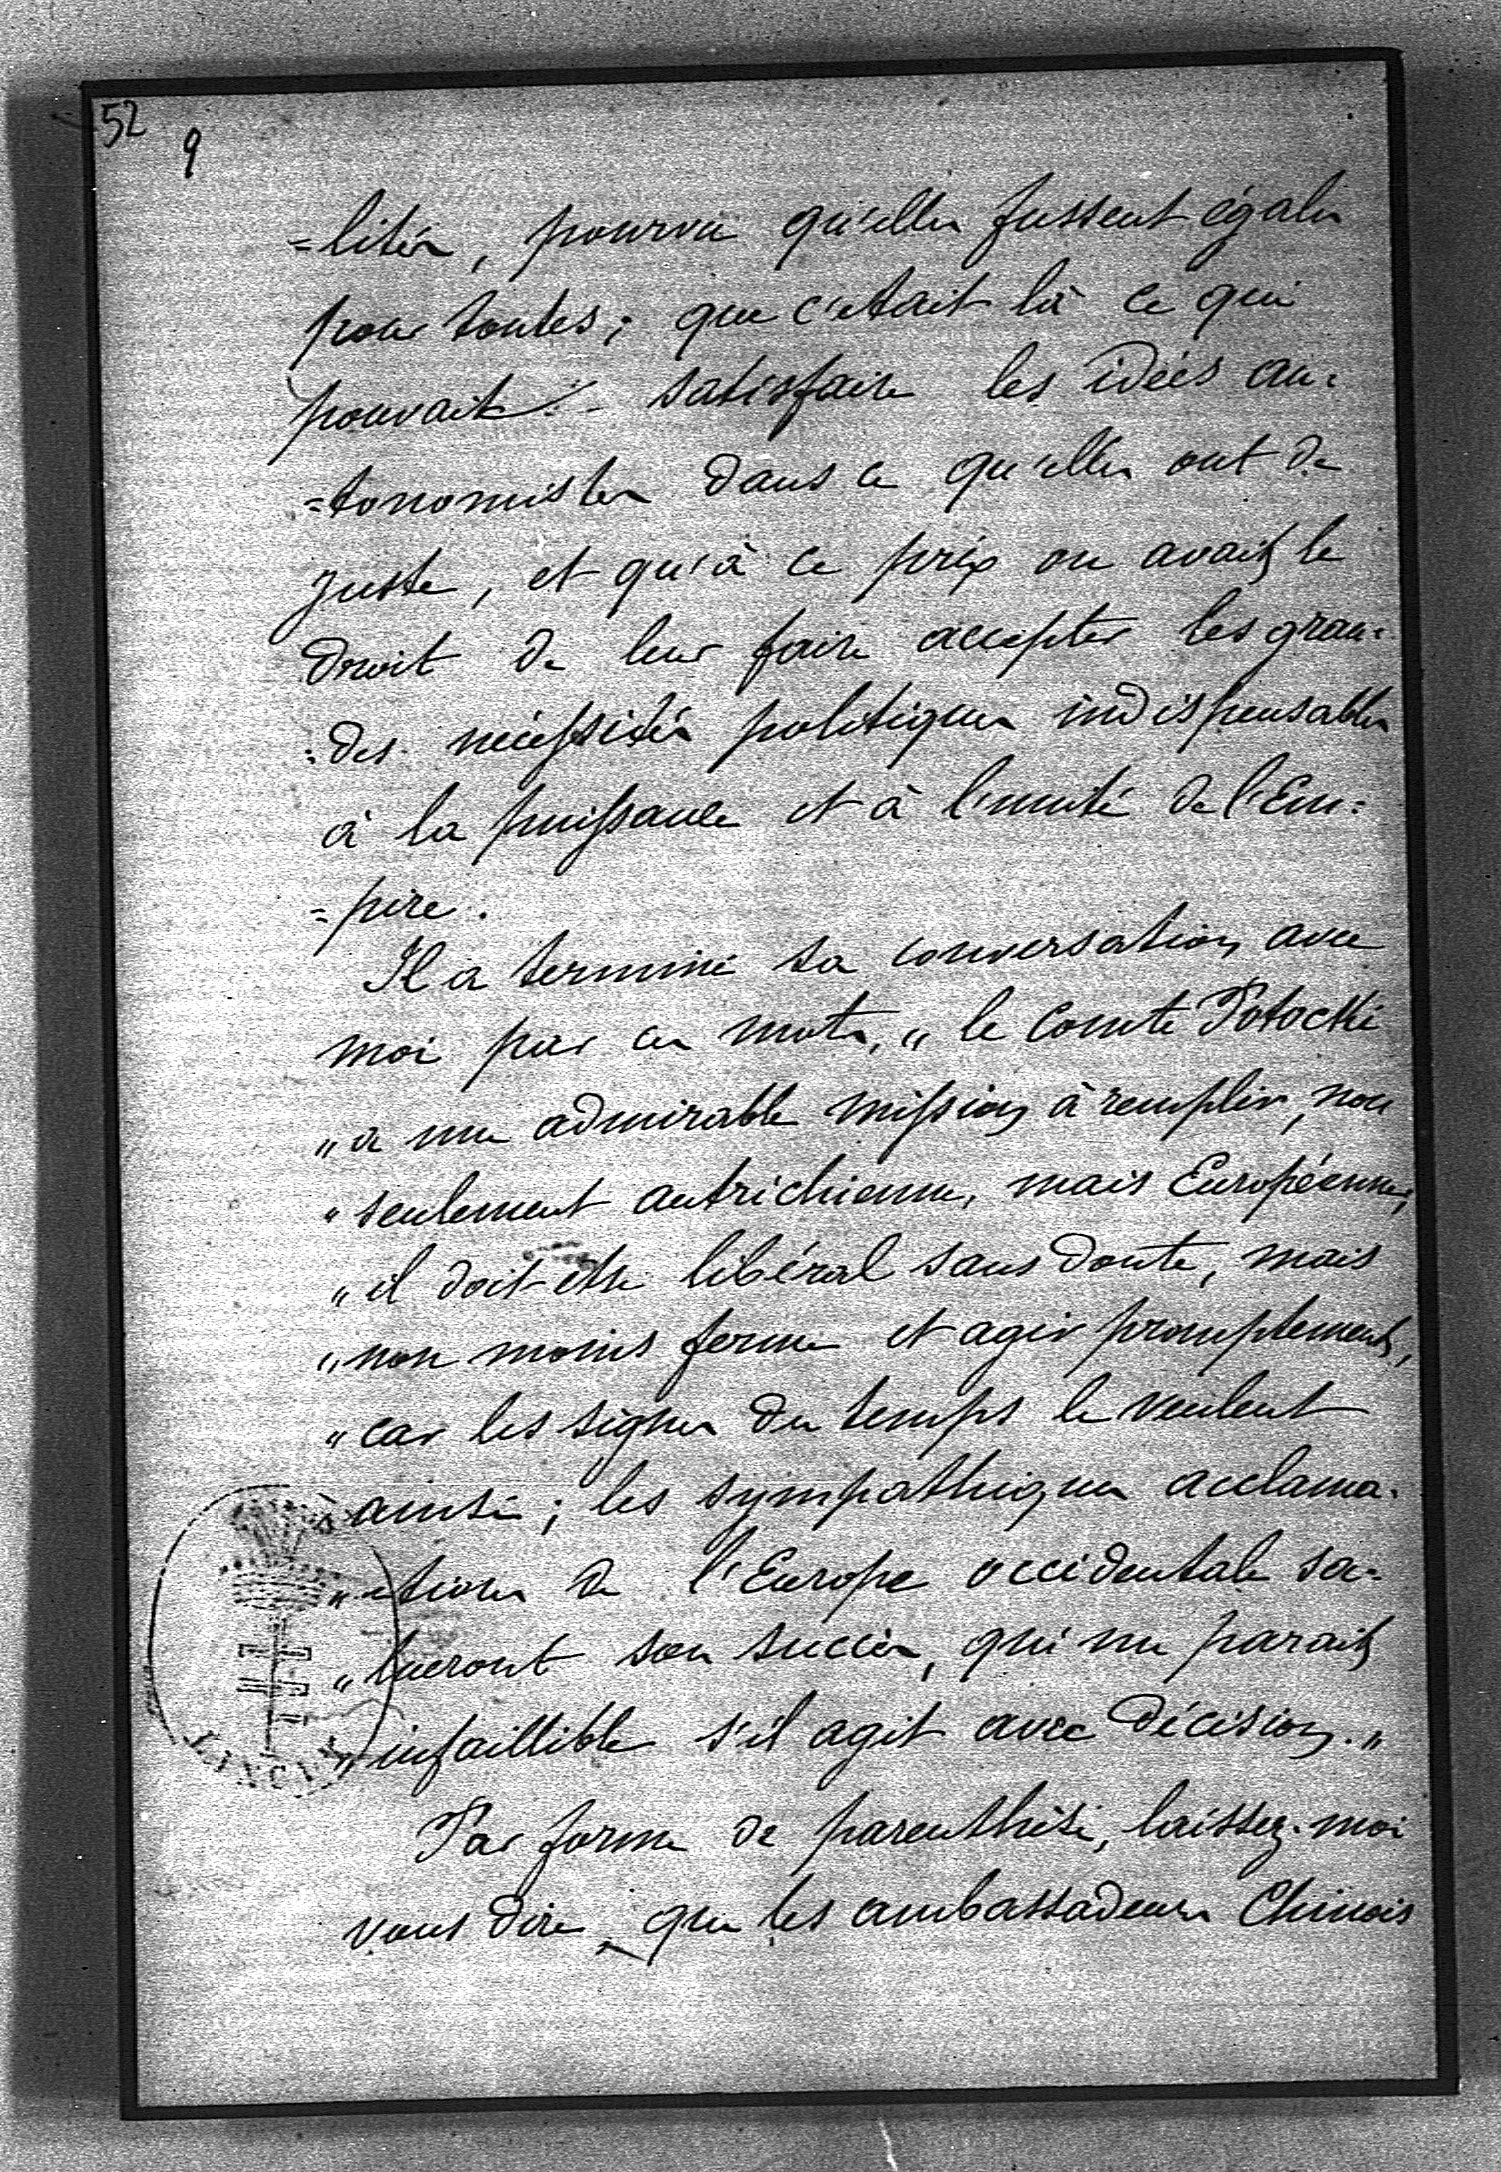 52
9
=lités, pourvu qu'elles fussent égales
pour toutes; que c'était là ce qui
pouvait satisfaire les idées au=
=tonomistes dans ce qu'elles ont de
juste, et qu'à ce prix on avait le
droit de leur faire accepter les gran=
=des nécessités politiques indispensables
à la puissance et à l'unité de l'Em=
=pire.
Il a terminé sa conversation avec
moi par ces mots, „ le Comte Potocki
„ a une admirable mission à remplir, non
„ seulement autrichienne, mais Européenne;
„ il doit être libéral sans doute, mais
„ non moins ferme et agir promptement,
„ car les signes du temps le veulent
„ ainsi; les sympathiques acclama=
„ =tions de l'Europe occidentale sa=
„ lueront son succès, qui me parait
„ infaillible s'il agit avec décision. „
Par forme de parenthèse, laissez-moi
vous dire, que les ambassadeurs Chinois